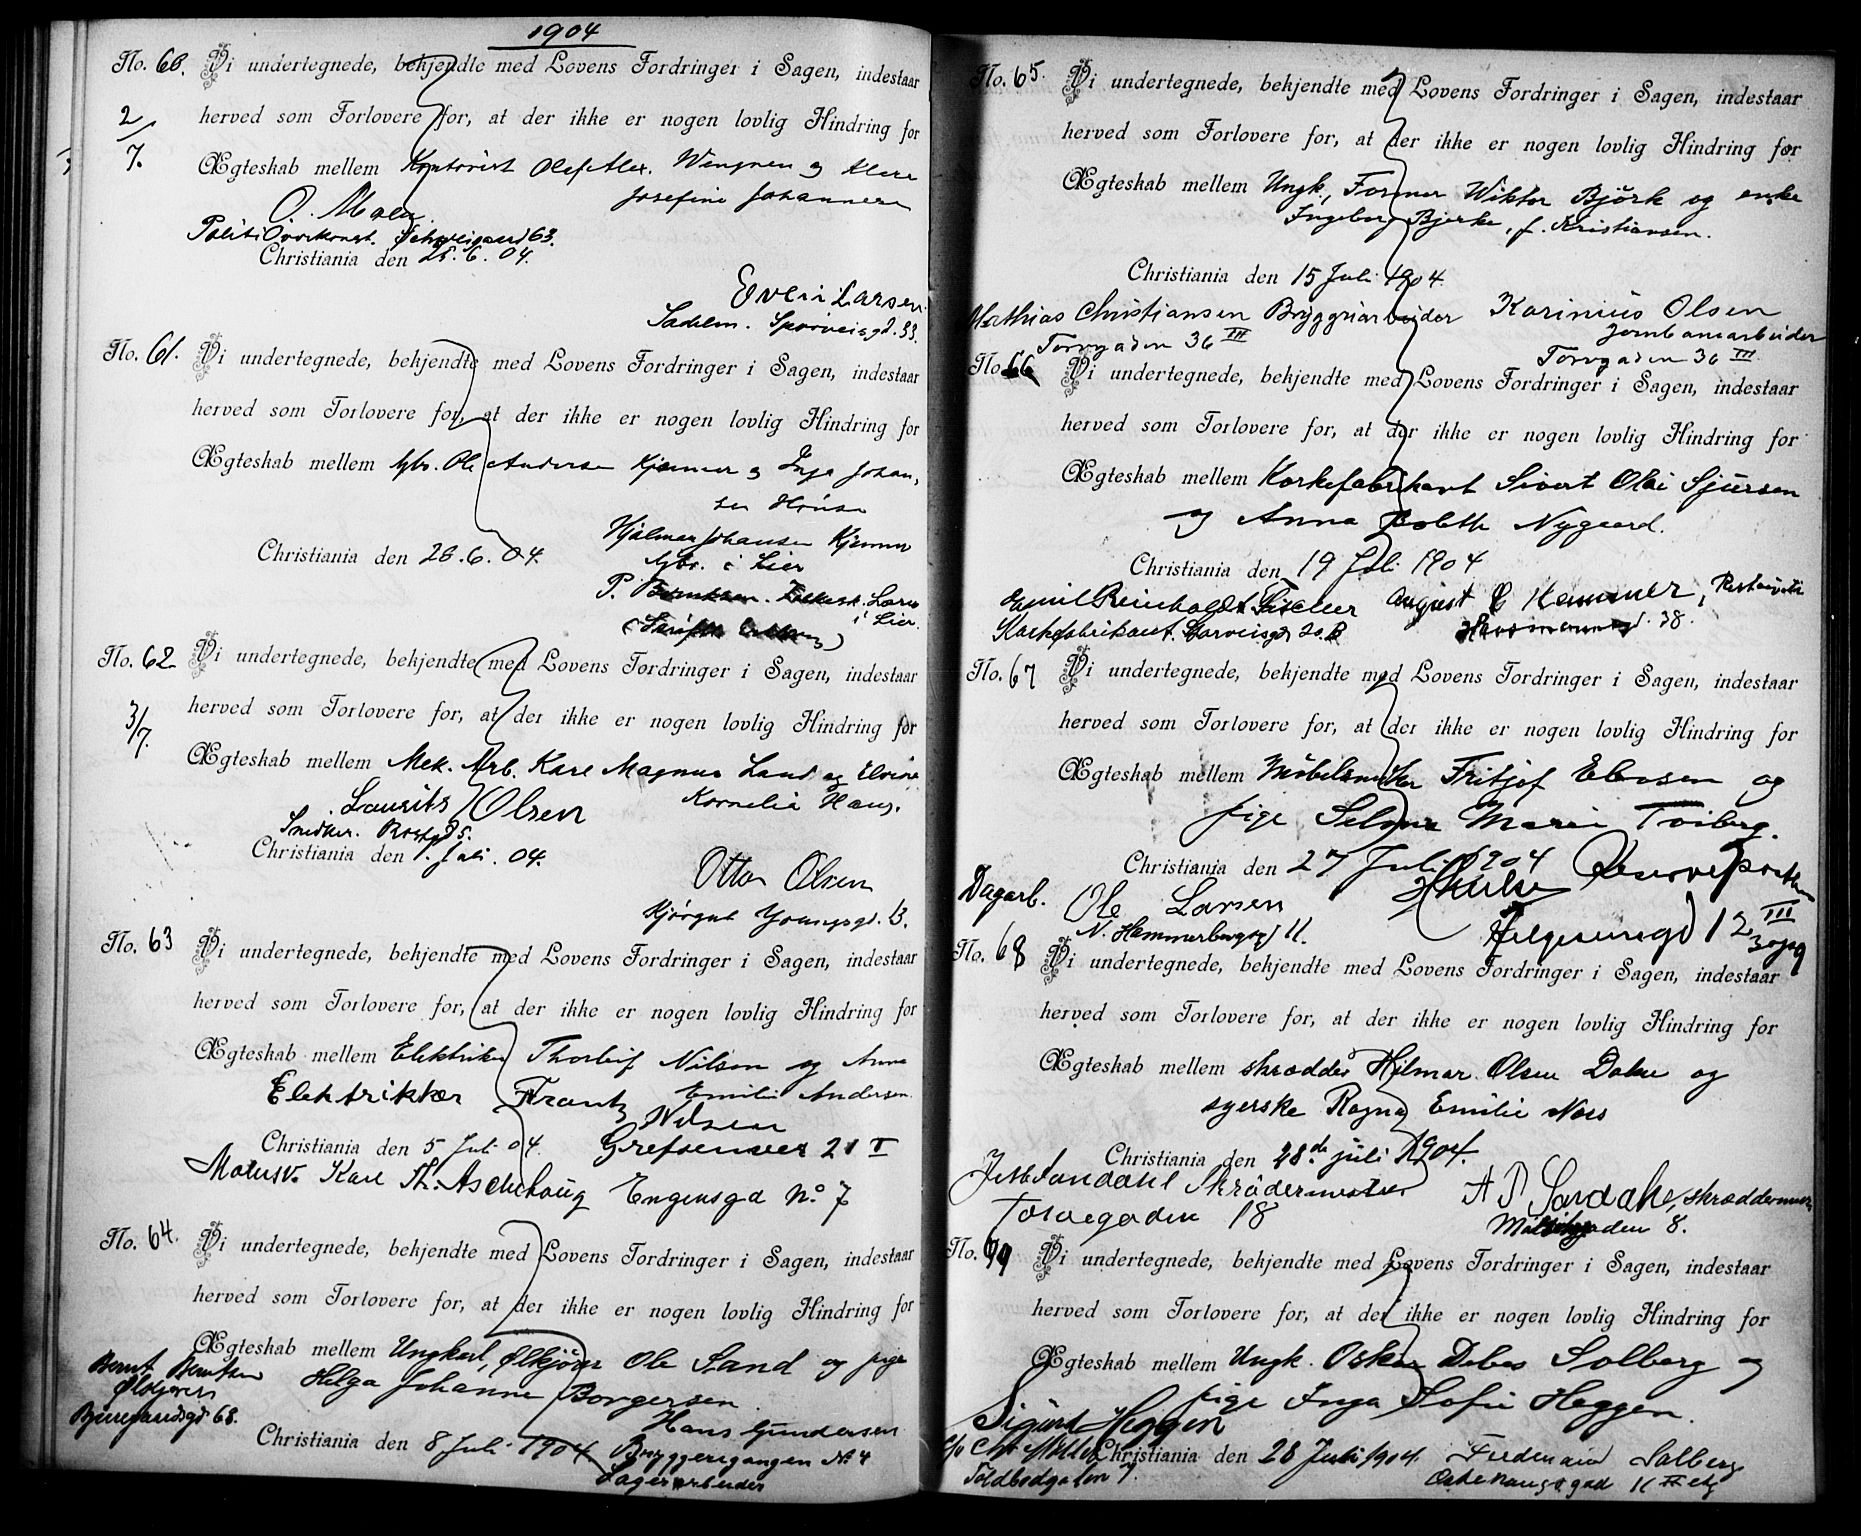 1904
No. 60. Vi undertegnede, bekjendte med Lovens Fordringer i Sagen, indestaar
2/7. herved som Forlovere for, at der ikke er nogen lovlig Hindring for
Ægteskab mellem Kontorist Olaf Alex. Wengren og
Josefine Johannesen
O. Moen
Politi Overkonst. Schweigaardsgd 63.
Christiania den 25.6.04.
Larsen
Sadelm. Sporveisgd. 33.
No. 61. Vi undertegnede, bekjendte med Lovens Fordringer i Sagen, indestaar
herved som Forlovere for, at der ikke er nogen lovlig Hindring for
Ægteskab mellem Gbr. Ole Andersen Kjemmer og Inga Johan,
sen
Hjalmar Johansen Kjemmer
Gbr. i Lier
Christiania den 28.6.04.
P.
i Lier
No. 62 Vi undertegnede, bekjendte med Lovens Fordringer i Sagen, indestaar
3/7. herved som Forlovere for, at der ikke er nogen lovlig Hindring for
Ægteskab mellem Mek. Arb. Karl Magnus Lund og
Kornelia Haug.
Laurits Olsen
Snedker.
Christiania den 1. Juli. 04.
Otto Olsen
Youngsgd. 13.
No. 63 Vi undertegnede, bekjendte med Lovens Fordringer i Sagen, indestaar
herved som Forlovere for, at der ikke er nogen lovlig Hindring for
Ægteskab mellem Elektriker Thorleif Nilsen og Anna
Emilie Andersen.
Elektrikker Frantz Nilsen
Christiania den 5 Juli 04. Grefsenveien 21 I
Karl Th. Aschehoug Engensgd No 7
No. 64. Vi undertegnede, bekjendte med Lovens Fordringer i Sagen, indestaar
herved som Forlovere for, at der ikke er nogen lovlig Hindring for
Ægteskab mellem Ungkarl, Ølkjører Ole Sand og pige
Helga Johanne Borgersen
Bernt Berntsen
Ølkjører
68.
Christiania den 8 Juli 1904
Hans Gundersen
Bryggerigangen No 4
Lagerarbeider
No. 65. Vi undertegnede, bekjendte med Lovens Fordringer i Sagen, indestaar
herved som Forlovere for, at der ikke er nogen lovlig Hindring for
Ægteskab mellem Ungk, Former Wiktor Björk og enke
Ingeborg Bjerke, f. Kristiansen.
Christiania den 15 Juli 1904.
Mathias Christiansen Bryggriarbeider Karinius Olsen
Jernbanearbeider
Torvgaden 36 III Torvgaden 36 III
No. 66 Vi undertegnede, bekjendte med Lovens Fordringer i Sagen, indestaar
herved som Forlovere for, at der ikke er nogen lovlig Hindring for
Ægteskab mellem Korkefabrikant Sivert Olai Sjursen
og Anna Bolette Nygaard.
Christiania den 19 Juli 1904
Emil Reinholdt Fischer August Kemmer,
Korkefabrikant. 20. B 38.
No. 67 Vi undertegnede, bekjendte med Lovens Fordringer i Sagen, indestaar
herved som Forlovere for, at der ikke er nogen lovlig Hindring for
Ægteskab mellem Møbelsnedker Fritjof Ebesen og
pige Selma Marie Toiberg.
Christiania den 27 Juli 1904
Dagarb. Ole Larsen
N. Hammerborgsgd 11.
Helgesensgd 12 III
No. 68 Vi undertegnede, bekjendte med Lovens Fordringer i Sagen, indestaar
herved som Forlovere for, at der ikke er nogen lovlig Hindring for
Ægteskab mellem skrædder Hilmar Olsen Dalen og
syerske Ragna Emilie Næss
Christiania den 28.de juli 1904.
Sandahl Skrädermester
Torvegaden 18
A P Sandahl, skræddermester
8.
No. 69 Vi undertegnede, bekjendte med Lovens Fordringer i Sagen, indestaar
herved som Forlovere for, at der ikke er nogen lovlig Hindring for
Ægteskab mellem Ungk. Oskar Debes Solberg og
pige Inga Sofie Heggen.
Sigurd Heggen
Christiania den 28 Juli 1904. Ferdinand Solberg
Toldbodgaden 7.